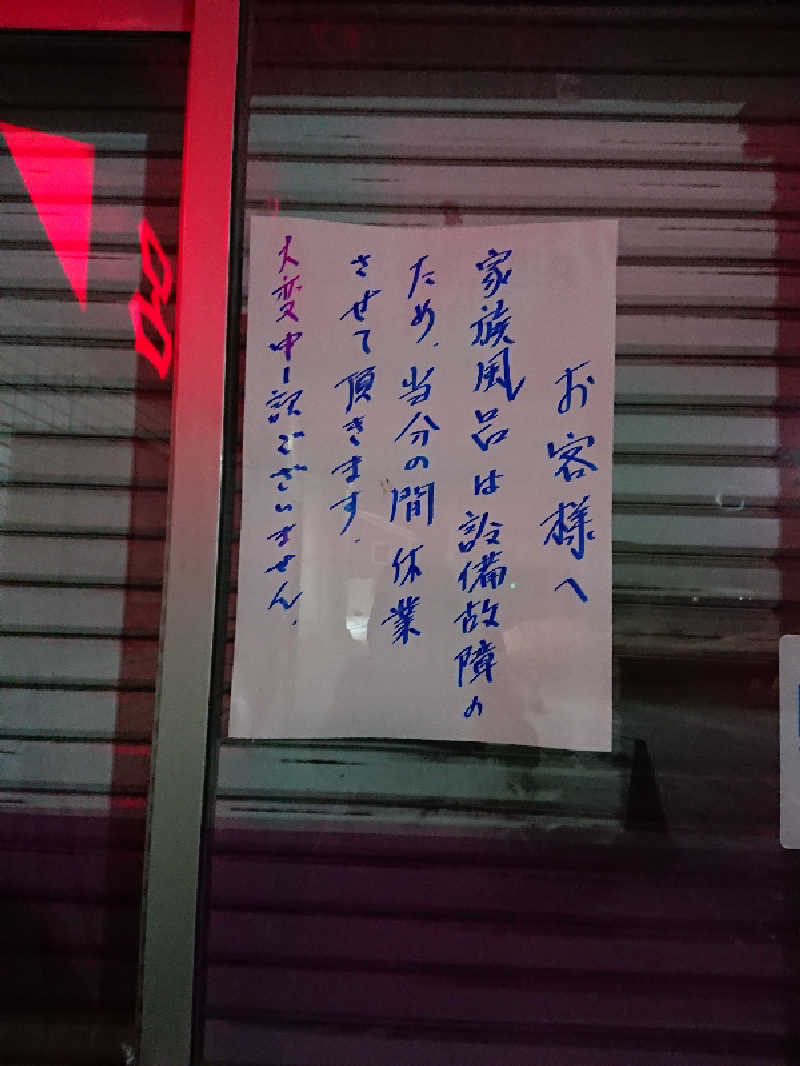 お客様へ
家族風呂は設備故障の
ため、当分の間休業
させて頂きます。
大変申し訳ございません。